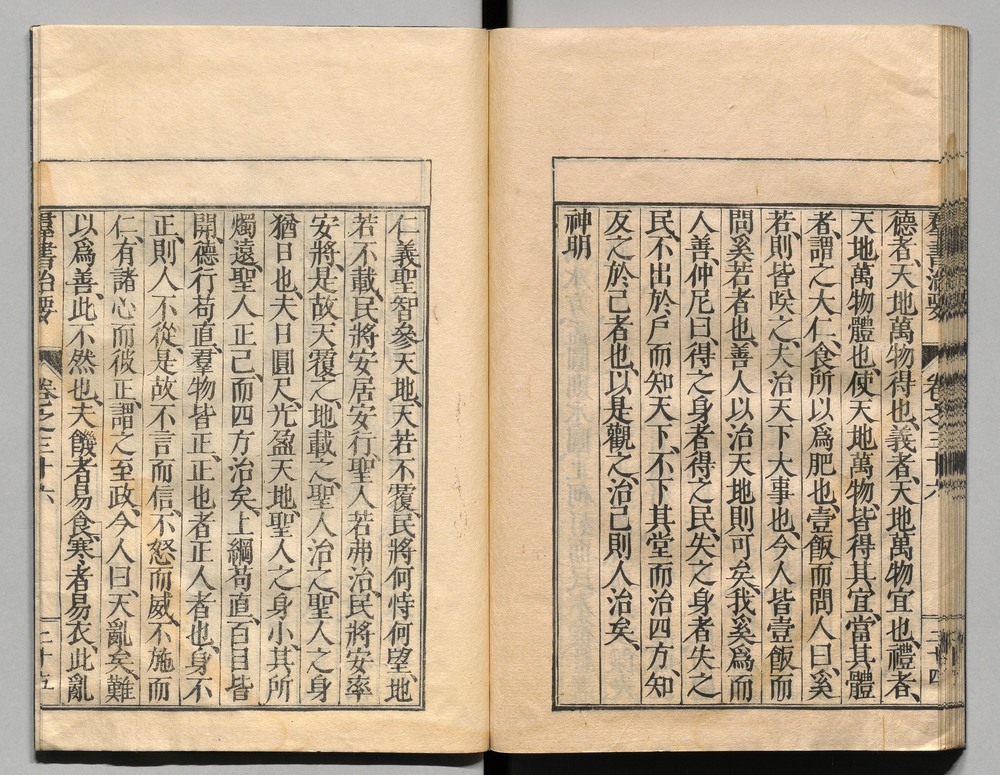 羣書治要 卷之三十六 二十四
德者、天地萬物得也、義者、天地萬物宜也、禮者、
天地萬物體也、使天地萬物、皆得其宜、當其體
者、謂之大仁、食所以爲肥也、壹飯而問人曰、奚
若、則皆咲之、夫治天下大事也、今人皆壹飯而
問奚若者也、善人以治天地則可矣、我奚爲而
人善、仲尼曰、得之身者得之民、失之身者失之
民、不出於戶而知天下、不下其堂而治四方、知
反之於己者也、以是觀之、治己則人治矣、
神明
仁義聖智參天地、天若不覆、民將何恃何望、地
若不載、民將安居安行、聖人若弗治、民將安率
安將、是故天覆之、地載之、聖人治之、聖人之身
猶日也、夫日圓尺、光盈天地、聖人之身小、其所
燭遠、聖人正己、而四方治矣、上綱苟直、百目皆
開、德行苟直、羣物皆正、正也者、正人者也、身不
正、則人不從、是故不言而信、不怒而威、不施而
仁、有諸心而彼正、謂之至政、今人曰、天亂矣、難
以爲善、此不然也、夫饑者易食、寒者易衣、此亂
羣書治要 卷之三十六 二十五